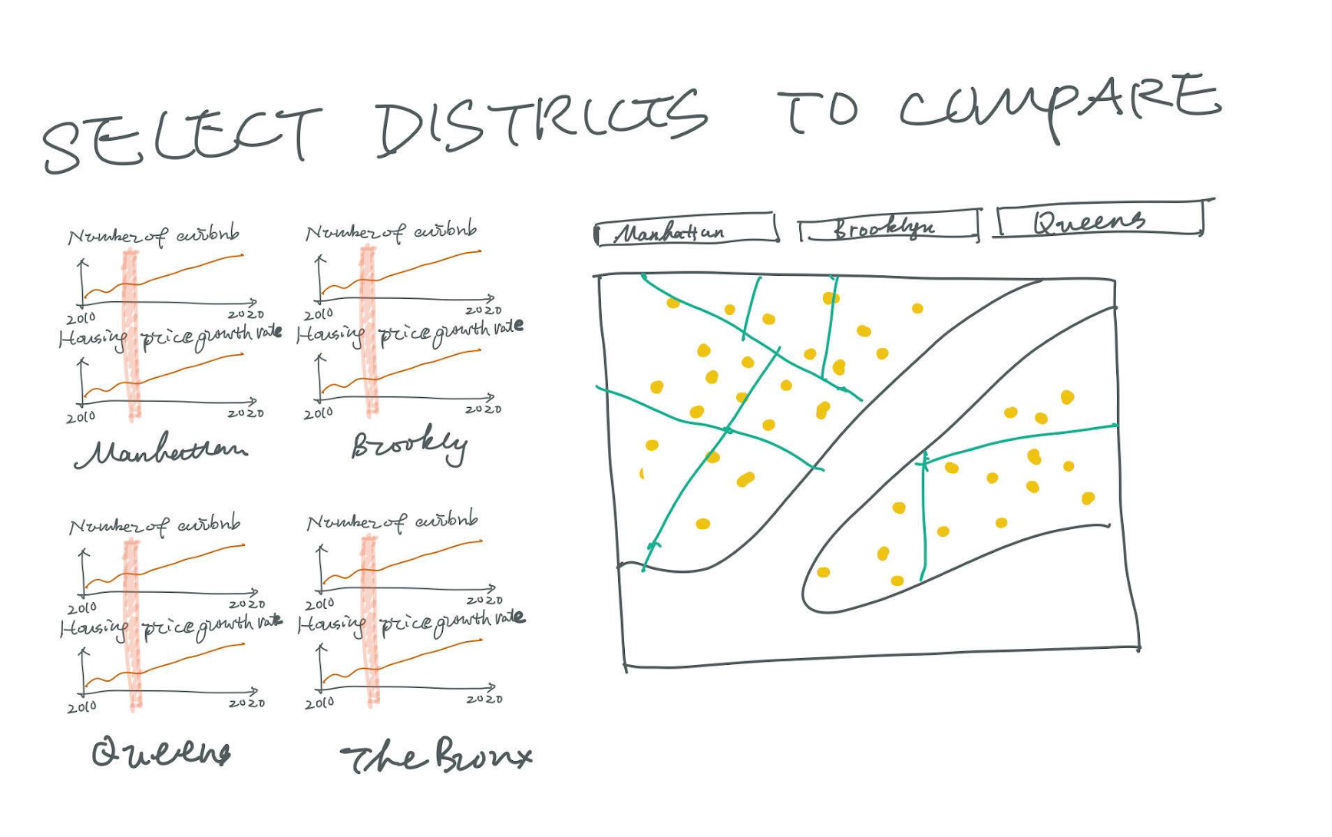 SELECT DISTRICTS TO COMPARE
Number of airbnb
2010 2020
Housing price growth rate
2010 2020
Manhattan
Number of airbnb
2010 2020
Housing price growth rate
2010 2020
Brookly
Number of airbnb
2010 2020
Housing price growth rate
2010 2020
Queens
Number of airbnb
2010 2020
Housing price growth rate
2010 2020
The Bronx
Manhattan
Brooklyn
Queens